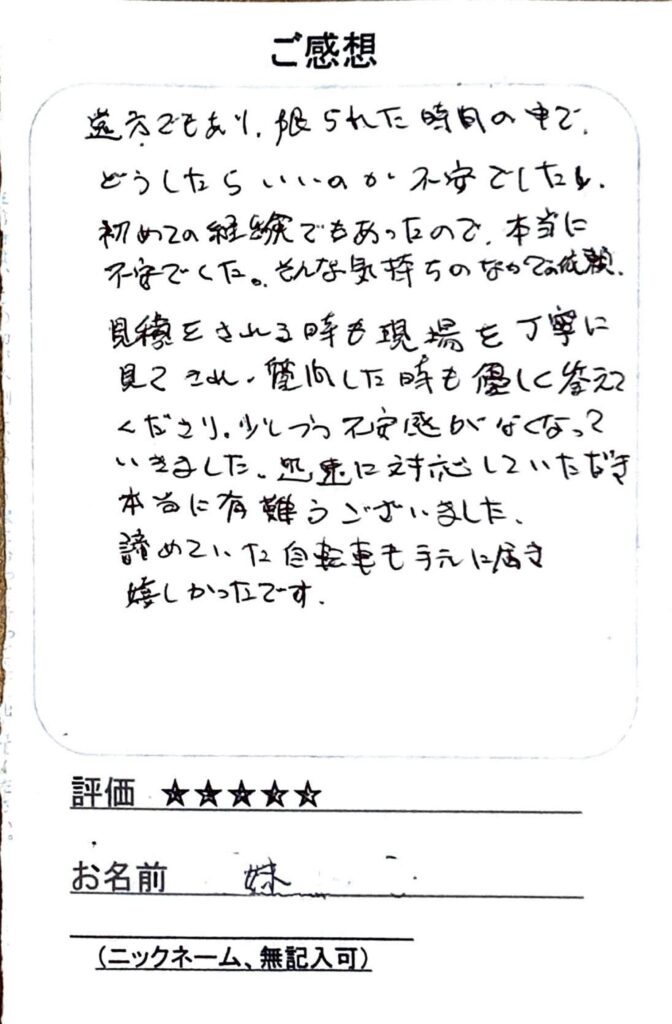 ご感想
遠方でもあり、限られた時間の中で、
どうしたらいいのか不安でした。
初めての経験でもあったので、本当に
不安でした。そんな気持ちのなかでの依頼、
見積をされる時も現場を丁寧に
見てされ、質問した時も優しく答えて
くださり、少しづつ不安感がなくなって
いきました。迅速に対応していただき
本当に有難うございました、
諦めていた自転車も手元に届き
嬉しかったです。
評価 ☆☆☆☆☆
お名前 妹
(ニックネーム、無記入可)